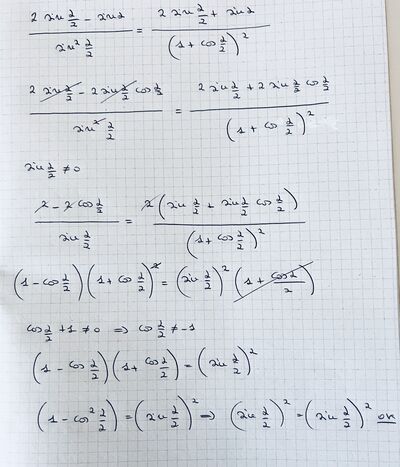 (2 sin α/2 - sin α)/(sin² α/2) = (2 sin α/2 + sin α)/(1 + cos α/2)²
(2 sin α/2 - 2 sin α/2 cos α/2)/(sin² α/2) = (2 sin α/2 + 2 sin α/2 cos α/2)/(1 + cos α/2)²
sin α/2 ≠ 0
(2 - 2 cos α/2)/(sin α/2) = 2(sin α/2 + sin α/2 cos α/2)/(1 + cos α/2)²
(1 - cos α/2)(1 + cos α/2)² = (sin α/2)²(1 + cos α/2)
cos α/2 + 1 ≠ 0 ⇒ cos α/2 ≠ -1
(1 - cos α/2)(1 + cos α/2) = (sin α/2)²
(1 - cos² α/2) = (sin α/2)² ⇒ (sin α/2)² = (sin α/2)² ok